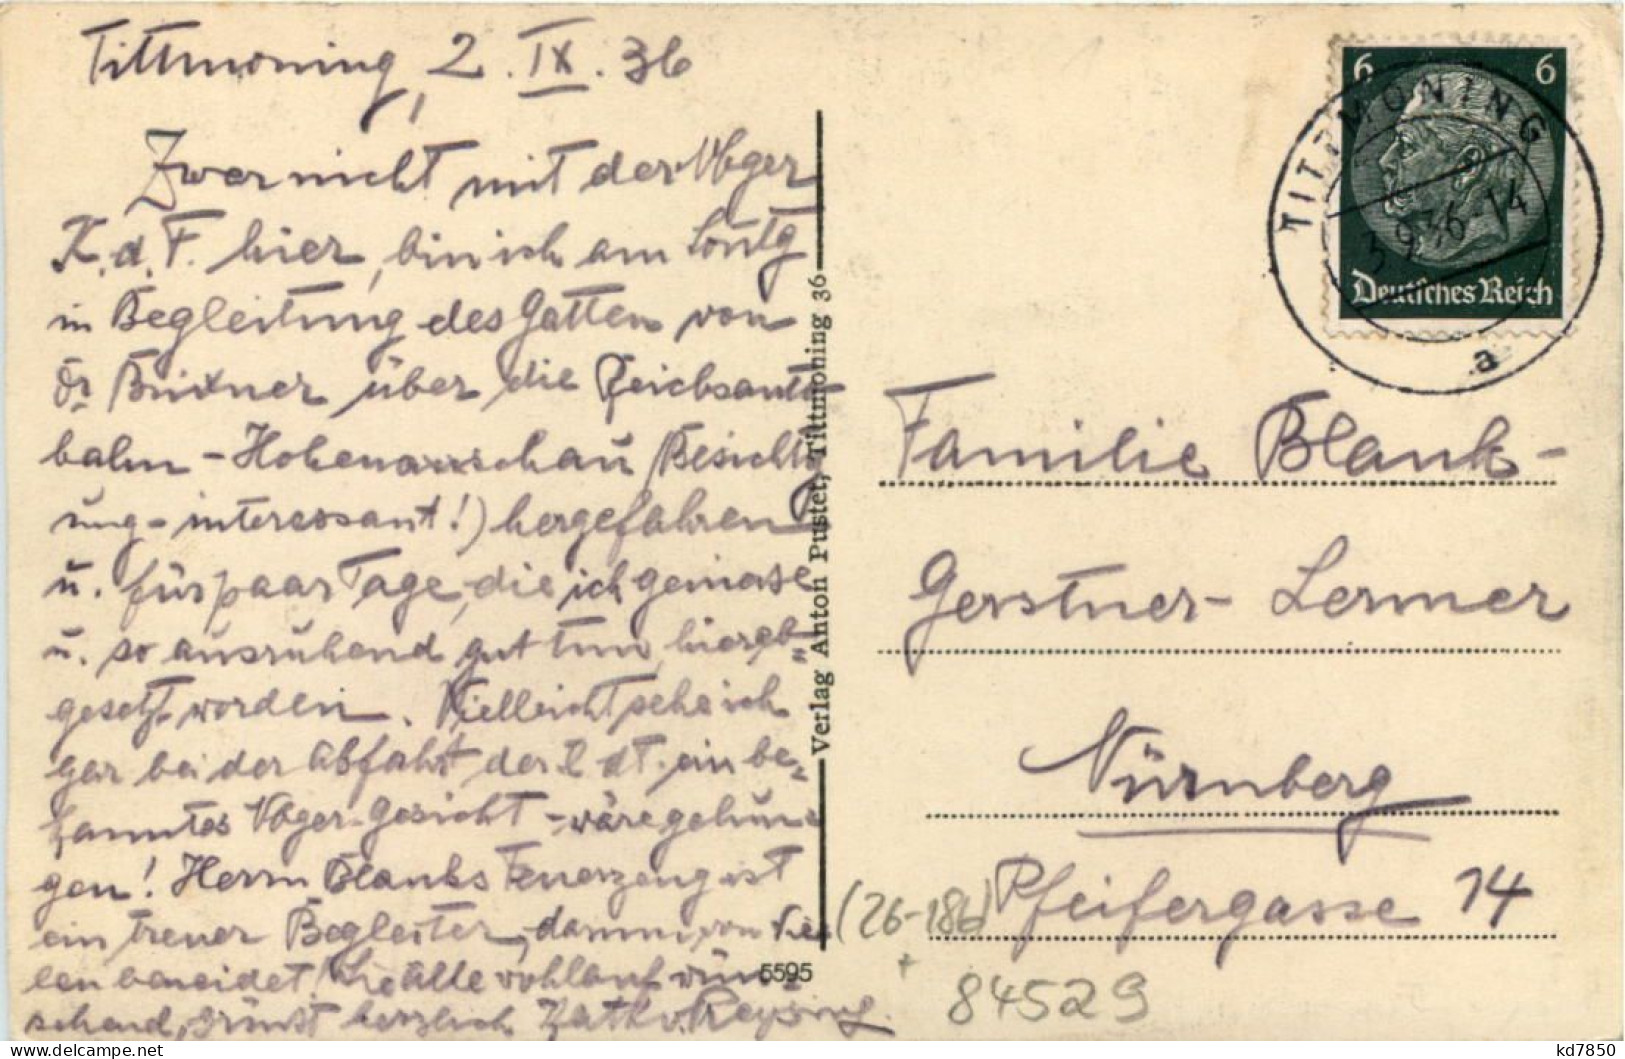 Tittmoning, 2. IX. 36
Zwar nicht mit der
K. d. F. hier, bin ich am Sontg
in Begleitung des Gatten von
Dr über die Reichsauto
bahn - Hohenaschau (Besichtig
ung - interessant!) hergefahren
u. für paar Tage, die ich geniese
u. so ausruhend gut tun, hier ab=
gesetzt worden. Vielleicht sehe ich
gar bei der Abfahrt der ein be=
kanntes Gesicht - wäre gelun=
gen! Herrn Blanks Feuerzeug ist
ein treuer Begleiter, darum von vie
len beneidet! Sie Alle wohlauf wün=
schend, grüsst herzlich
Verlag Anton Pustet, Tittmoning 36
5595
6 6
Deutsches Reich
TITTMONING
3.9.36-14
a
Familie Blank-
Gerstner- Lermer
Nürnberg
Pfeifergasse 14
(26-186)
84529
kd7850